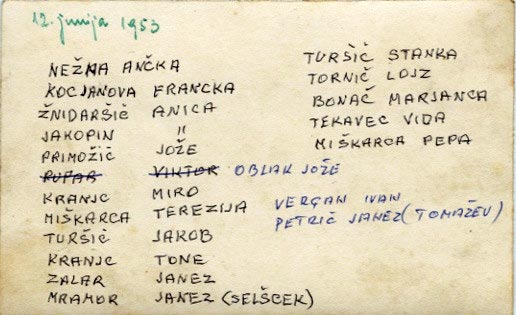 12. junija 1953
NEŽNA ANČKA
KOCJANOVA FRANCKA
ŽNIDARŠIČ ANICA
JAKOPIN "
PRIMOŽIČ JOŽE
RUPAR VIKTOR OBLAK JOŽE
KRANJC MIRO
MIŠKARCA TEREZIJA
TURŠIČ JAKOB
KRANJC TONE
ZALAR JANEZ
MRAMOR JANEZ (SELŠČEK)
TURŠIČ STANKA
TORNIČ LOJZ
BONAČ MARJANCA
TEKAVEC VIDA
MIŠKARCA PEPA
VERGAN IVAN
PETRIČ JANEZ (TOMAŽEV)